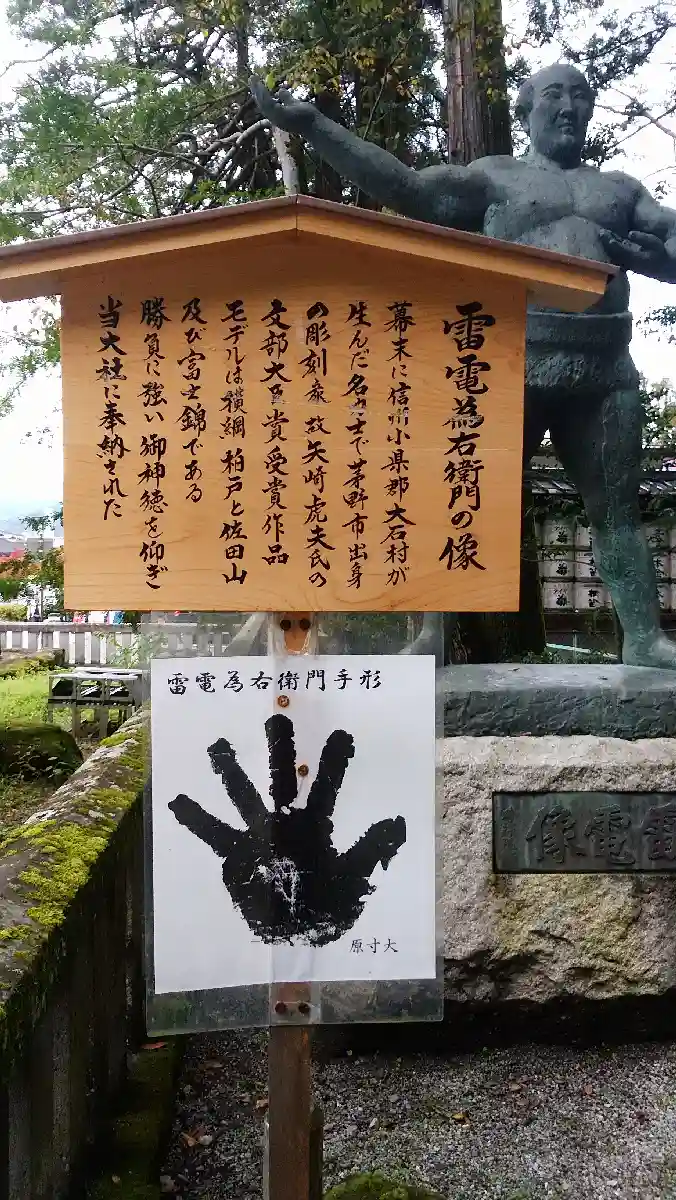 雷電為右衛門の像
幕末に信州小県郡大石村が
生んだ名力士で茅野市出身
の彫刻家故矢崎虎夫氏の
文部大臣賞受賞作品
モデルは横綱柏戸と佐田山
及び富士錦である
勝負に強い御神徳を仰ぎ
当大社に奉納された
雷電為右衛門手形
原寸大
雷電像